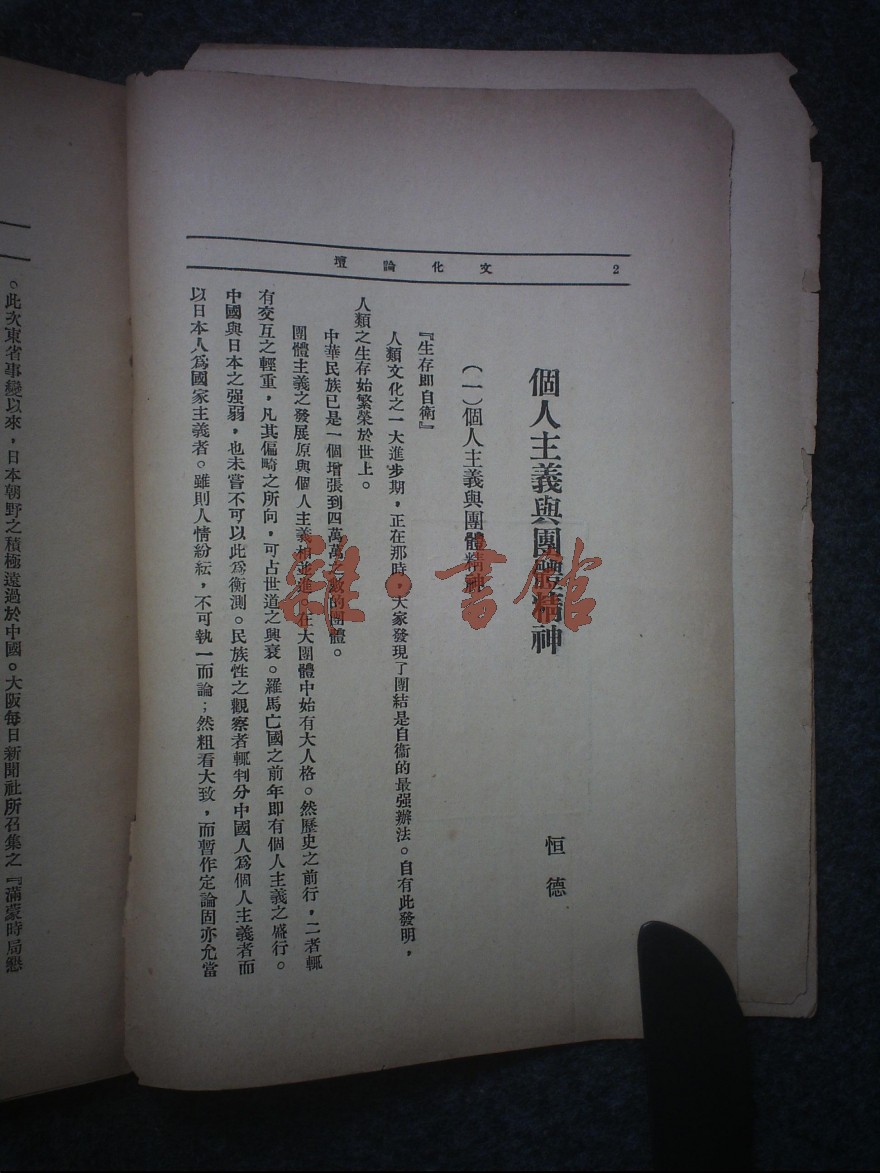 文化論壇
2
個人主義與團體精神
恒德
(一)個人主義與團體精神
『生存即自衛』
人類文化之一大進步期，正在那時，大家發現了團結是自衞的最强辦法。自有此發明，
人類之生存始繁榮於世上。
中華民族已是一個增張到四萬萬之數的團體。
團體主義之發展原與個人主義相並進。在大團體中始有大人格。然歷史之前行，二者輒
有交互之輕重，凡其偏畸之所向，可占世道之興衰。羅馬亡國之前年即有個人主義之盛行。
中國與日本之强弱，也未嘗不可以此爲衡測。民族性之觀察者輒判分中國人爲個人主義者而
以日本人爲國家主義者。雖則人情紛紜，不可執一而論；然粗看大致，而暫作定論固亦允當
。此次東省事變以來，日本朝野之積極遠過於中國。大阪每日新聞社所召集之『滿蒙時局懇
雜·書館